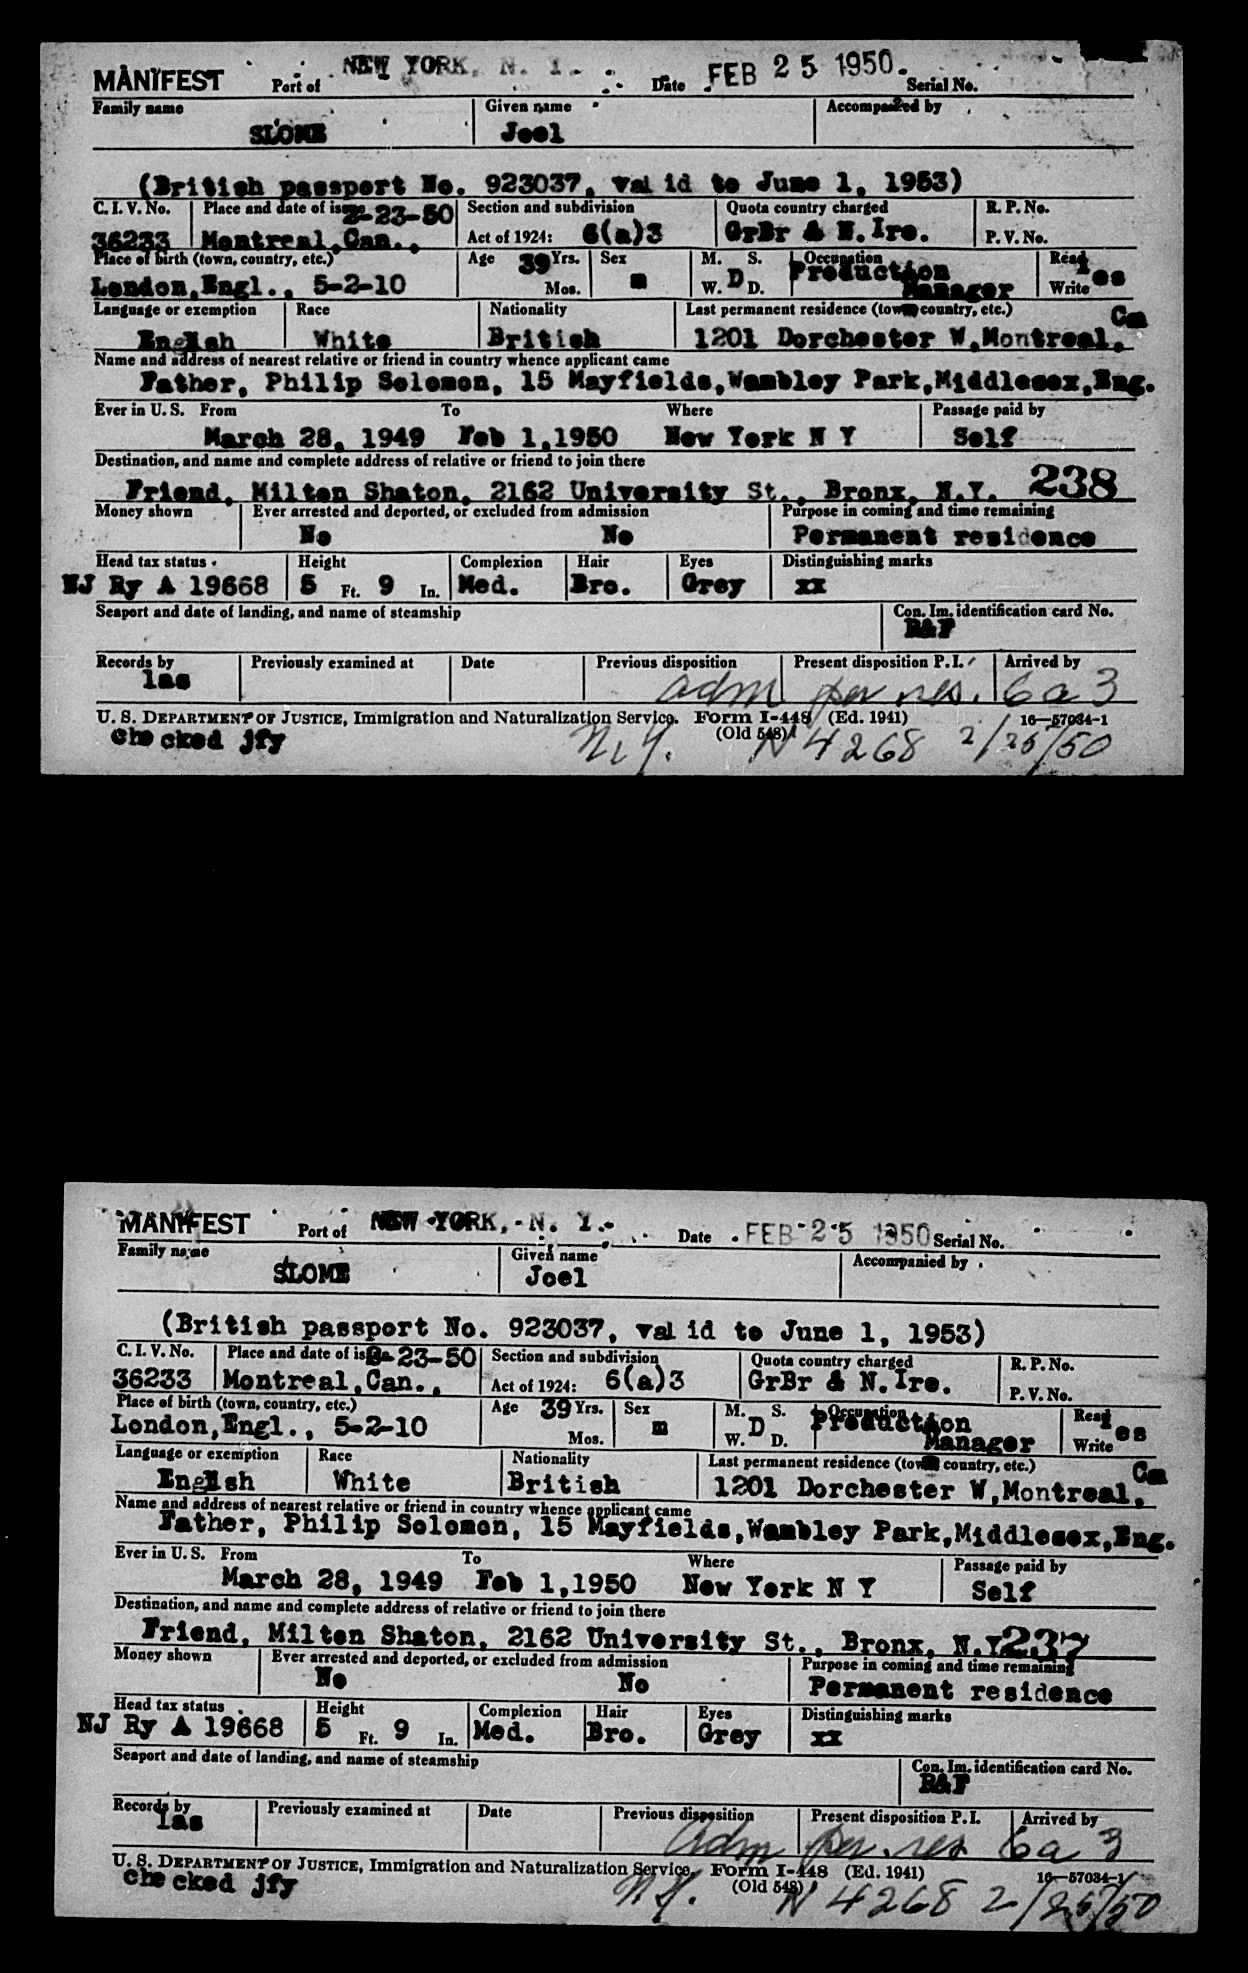 MANIFEST Port of NEW YORK, N. Y. Date FEB 25 1950 Serial No.
Family name Given name Accompanied by
SLOME Joel
(British passport No. 923037, val id to June 1, 1953)
C. I. V. No. Place and date of issue 2-23-50 Section and subdivision Quota country charged R. P. No.
36233 Montreal,Can., Act of 1924: 6(a)3 GrBr & N.Ire. P. V. No.
Place of birth (town, country, etc.) Age 39 Yrs. Sex M. S. Occupation Read
London,Engl., 5-2-10 Mos. m W. D D. Production Manager Write Yes
Language or exemption Race Nationality Last permanent residence (town, country, etc.)
English White British 1201 Dorchester W,Montreal, Can
Name and address of nearest relative or friend in country whence applicant came
Father, Philip Solomon, 15 Mayfields,Wembley Park,Middlesex,Eng.
Ever in U. S. From To Where Passage paid by
March 28, 1949 Feb 1,1950 New York N Y Self
Destination, and name and complete address of relative or friend to join there
Friend, Milton Shaton, 2162 University St., Bronx, N.Y. 238
Money shown Ever arrested and deported, or excluded from admission Purpose in coming and time remaining
No No Permanent residence
Head tax status Height Complexion Hair Eyes Distinguishing marks
NJ Ry A 19668 5 Ft. 9 In. Med. Bro. Grey xx
Seaport and date of landing, and name of steamship Con. Im. identification card No.
R&F
Records by Previously examined at Date Previous disposition Present disposition P. I. Arrived by
las adm per res. 6a3
U. S. DEPARTMENT OF JUSTICE, Immigration and Naturalization Service. Form I-448 (Ed. 1941) 16—57034-1
(Old 548)
che cked jfy N.Y. N 4268 2/25/50
MANIFEST Port of NEW YORK, N. Y. Date FEB 25 1950 Serial No.
Family name Given name Accompanied by
SLOME Joel
(British passport No. 923037, val id to June 1, 1953)
C. I. V. No. Place and date of issue 2-23-50 Section and subdivision Quota country charged R. P. No.
36233 Montreal,Can., Act of 1924: 6(a)3 GrBr & N.Ire. P. V. No.
Place of birth (town, country, etc.) Age 39 Yrs. Sex M. S. Occupation Read
London,Engl., 5-2-10 Mos. m W. D D. Production Manager Write Yes
Language or exemption Race Nationality Last permanent residence (town, country, etc.)
English White British 1201 Dorchester W,Montreal, Can
Name and address of nearest relative or friend in country whence applicant came
Father, Philip Solomon, 15 Mayfields,Wembley Park,Middlesex,Eng.
Ever in U. S. From To Where Passage paid by
March 28, 1949 Feb 1,1950 New York N Y Self
Destination, and name and complete address of relative or friend to join there
Friend, Milton Shaton, 2162 University St., Bronx, N.Y. 237
Money shown Ever arrested and deported, or excluded from admission Purpose in coming and time remaining
No No Permanent residence
Head tax status Height Complexion Hair Eyes Distinguishing marks
NJ Ry A 19668 5 Ft. 9 In. Med. Bro. Grey xx
Seaport and date of landing, and name of steamship Con. Im. identification card No.
R&F
Records by Previously examined at Date Previous disposition Present disposition P. I. Arrived by
las adm per. res 6a3
U. S. DEPARTMENT OF JUSTICE, Immigration and Naturalization Service. Form I-448 (Ed. 1941) 16—57034-1
(Old 548)
che cked jfy N.Y. N 4268 2/25/50